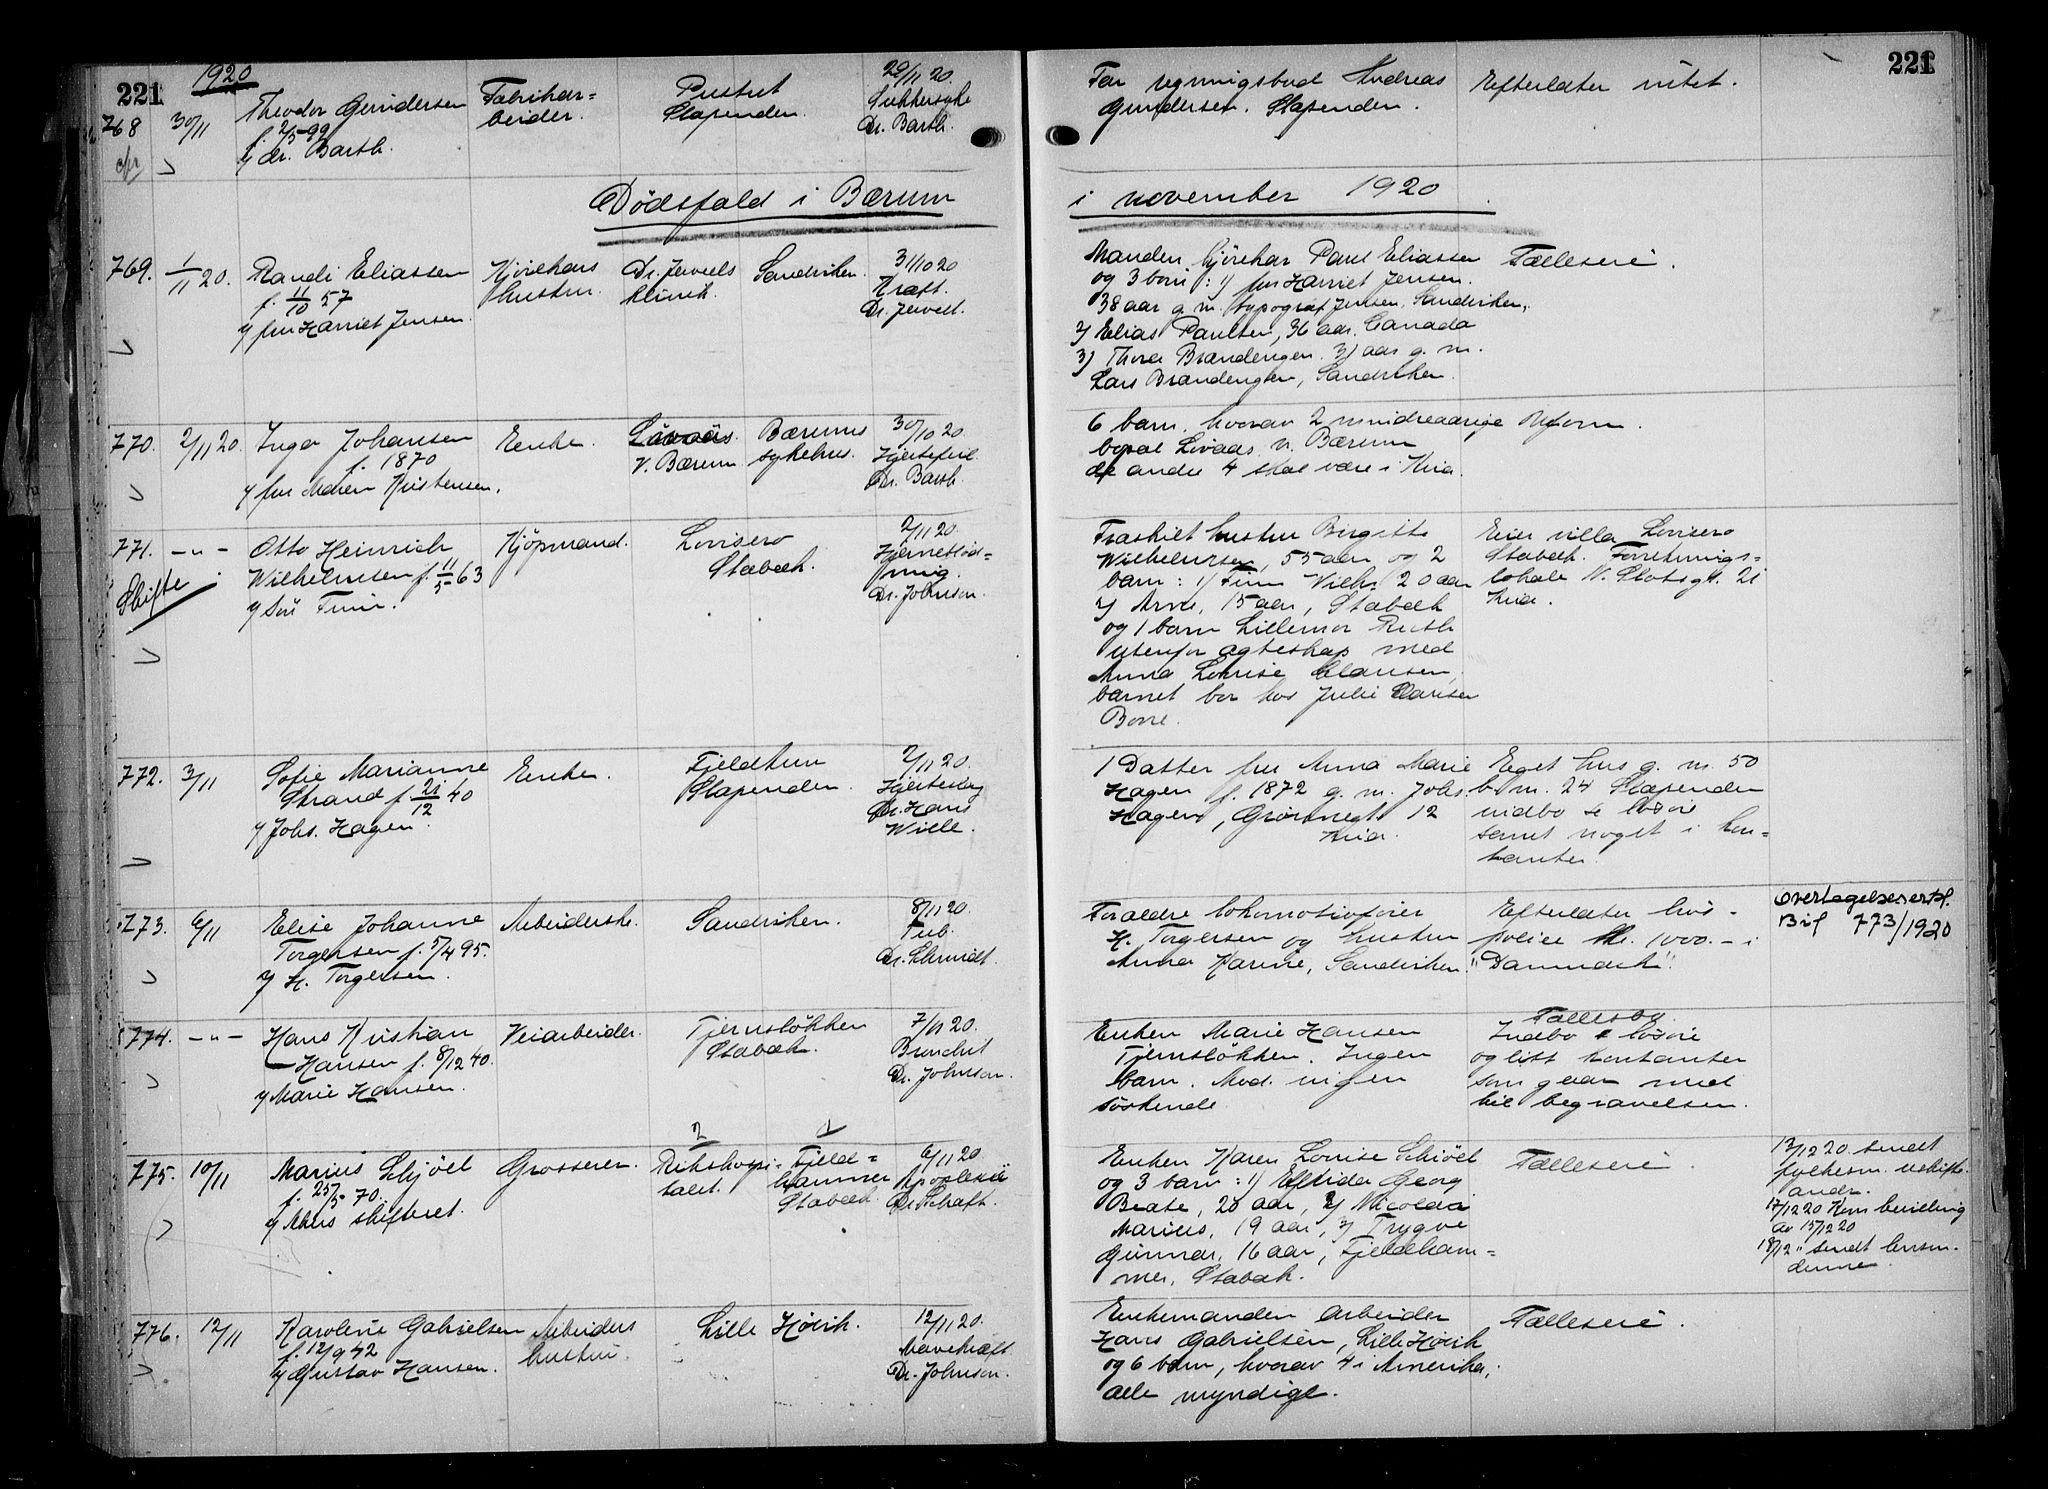 221
1920
221
768 30/11 Theodor Gundersen
f. 2/5-99
v/ dr. Barth.
Fabrikar=
beider.
Slependen.
29/11 20.
Sukkersyke
Dr. Barth.
Far regningsbud Andreas
Gundersen. Slependen.
Efterlater intet.
Dödsfald i Bærum
i november 1920
769. 1/11 20. Randi Eliassen
f. 11/10 57
v/ fru Harriet Jensen.
Kjörekars
hustru.
Dr. Jervels
klinik.
Sandviken.
31/10 20
Kræft.
Dr. Jervell.
Manden kjörekar Paul Eliassen
og 3 barn: 1/ fru Harriet Jensen.
38 aar g. m. typograf Jensen, Sandviken,
2/ Elias Paulsen, 36 aar. Canada
3) Thora Brændengen. 31 aar g. m.
Lars Brændengen, Sandviken.
Fælleseie.
770. 2/11 20. Inga Johansen
f. 1870
v/ fru Maren Kristensen.
Enke.
Lövaas.
V. Bærum
Bærums
sykehus.
30/10 20.
Hjertefeil
Dr. Barth.
6 barn, hvorav 2 mindreaarige
bopæl Livaas v. Bærum
de andre 4 skal være i Kria.
Uform.
771. -"- Otto Heinrich
Wilhelmsen f. 11/5 63
v/ Sön Finn.
Skifte
Kjöpmand.
Lovisero
Stabæk.
2/11 20.
Hjerneblöd=
ning.
Dr. Johnson.
Fraskilt hustru Birgitte
Wilhelmsen, 55 aar og 2
barn: 1/ Finn Wilh. 20 aar
2/ Arne, 15 aar, Stabæk
og 1 barn Lillemor Ruth
utenfor ægteskap med
Anna Lovise Clausen,
barnet bor hos Julie Clausen
Borre.
Eier villa Lovisero
Stabæk. Forretnings=
lokale N. Slotsgt. 21
Kria.
772. 3/11 Sofie Marianne
Strand f. 21/12 40
v/ Johs. Hagen.
Enke.
Fjeldtun
Slependen.
2/11 20.
Hjerteslag
Dr. Hans
Wille.
1 Datter fru Anna Marie
Hagen f. 1872 g. m. Johs.
Hagen, Grönnegt. 12
Kria.
Eget hus g. nr. 50
b. nr. 24 Slependen
indbo & lösöre
samt noget i kon=
tanter.
773. 6/11 Elise Johanne
Torgersen f. 5/4 95.
v/ H. Torgersen.
Arbeiderske.
Sandviken.
8/11 20.
Tub.
Dr. Schmidt.
Forældre lokomotivförer
H. Torgersen og hustru
Anna Karine, Sandviken.
Efterlater livs-
police Kr. 1000.- i
"Danmark".
Overtagelseserkl.
Bil 773/1920
774. -"- Hans Kristian
Hansen f. 8/12 40.
v/ Marie Hansen.
Veiarbeider.
Tjernslökken
Stabæk.
7/11 20.
Dr. Johnson.
Enken Marie Hansen
Tjernslökken. Ingen
barn. Mod. ingen
söskende.
Fællesbo.
Indbo & lösöre
og litt kontanter
som gaar med
til begravelsen.
2 1
775. 10/11 Marius Schjöll
f. 25/5 70.
v/ Akers skifteret.
Grosserer.
Rikshospi=
talet.
Fjeld=
hammer
Stabæk.
6/11 20
Apoplexie
Enken Karen Louise Schiöll
og 3 barn: 1/ Elfrida Georg
Beate, 20 aar, 2/ Nicolai
Marius, 19 aar, 3/ Trygve
Gunnar, 16 aar, Fjeldham=
mer, Stabæk.
Fælleseie.
13/12 20. sendt
folkesm. uskifte.
andr.
17/12 20 Kom bevilling
av 15/12 20
18/12 " sendt lensm.
denne.
776. 12/11 Karoline Gabrielsen
f. 12/9 42
v/ Gustav Hansen.
Arbeiders
hustru.
Lille Hövik.
12/11 20.
Mavekræft.
Dr. Johnson.
Enkemanden arbeider
Hans Gabrielsen, Lille Hövik
og 6 barn, hvorav 4 i Amerika,
alle myndige.
Fælleseie.